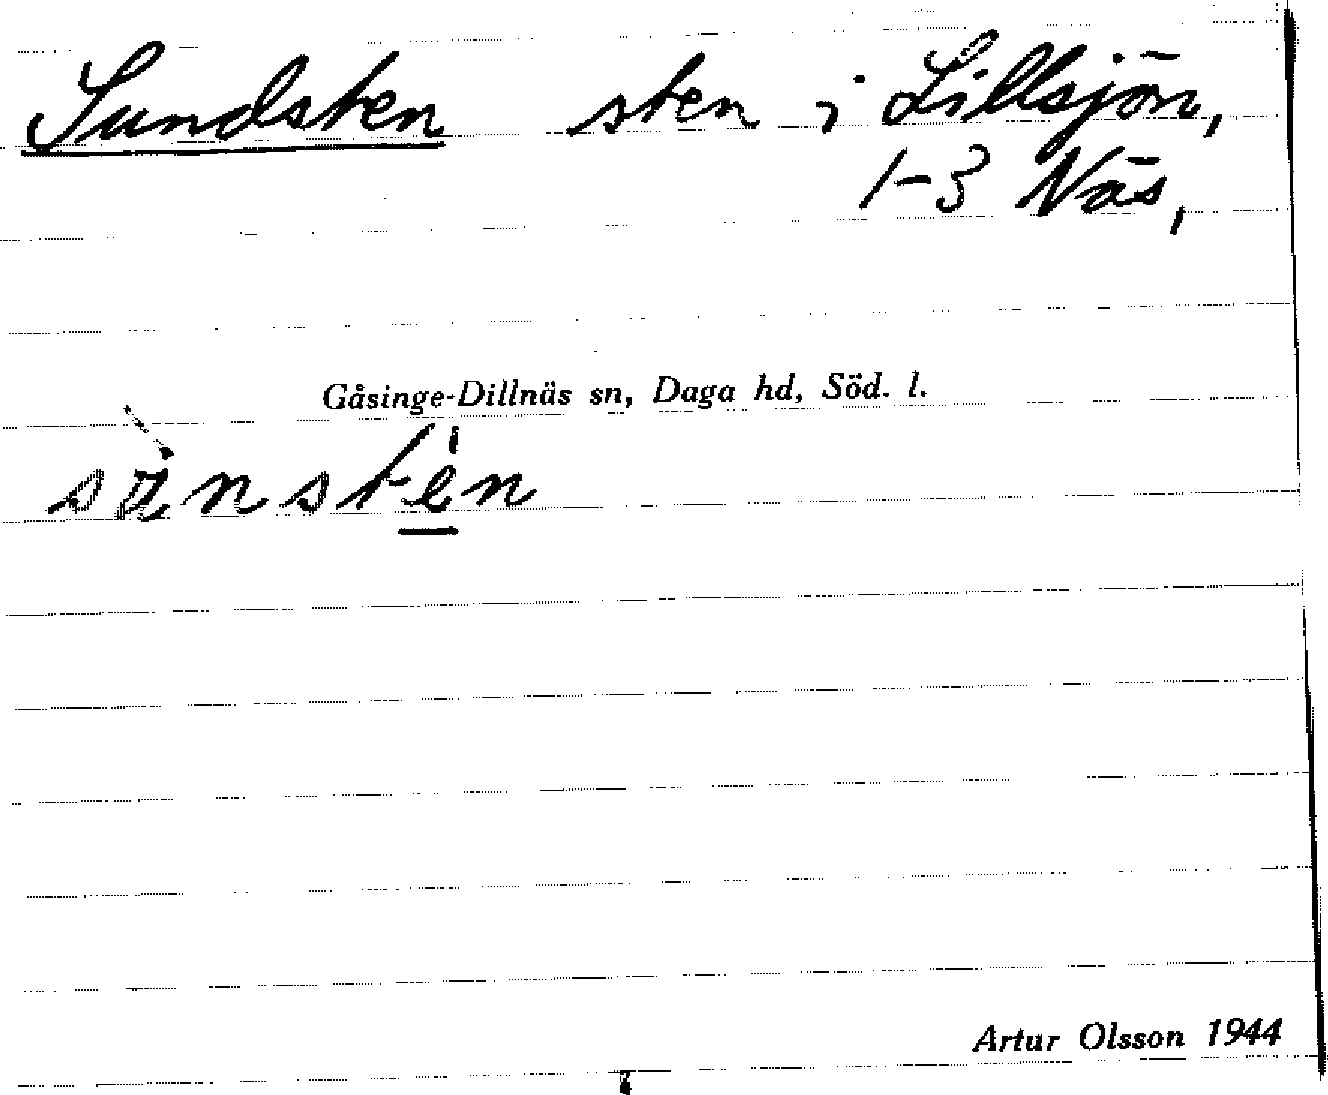 Sundsten sten i Lillsjön,
1-3 Näs,
Gåsinge-Dillnäs sn, Daga hd, Söd. l.
Artur Olsson 1944